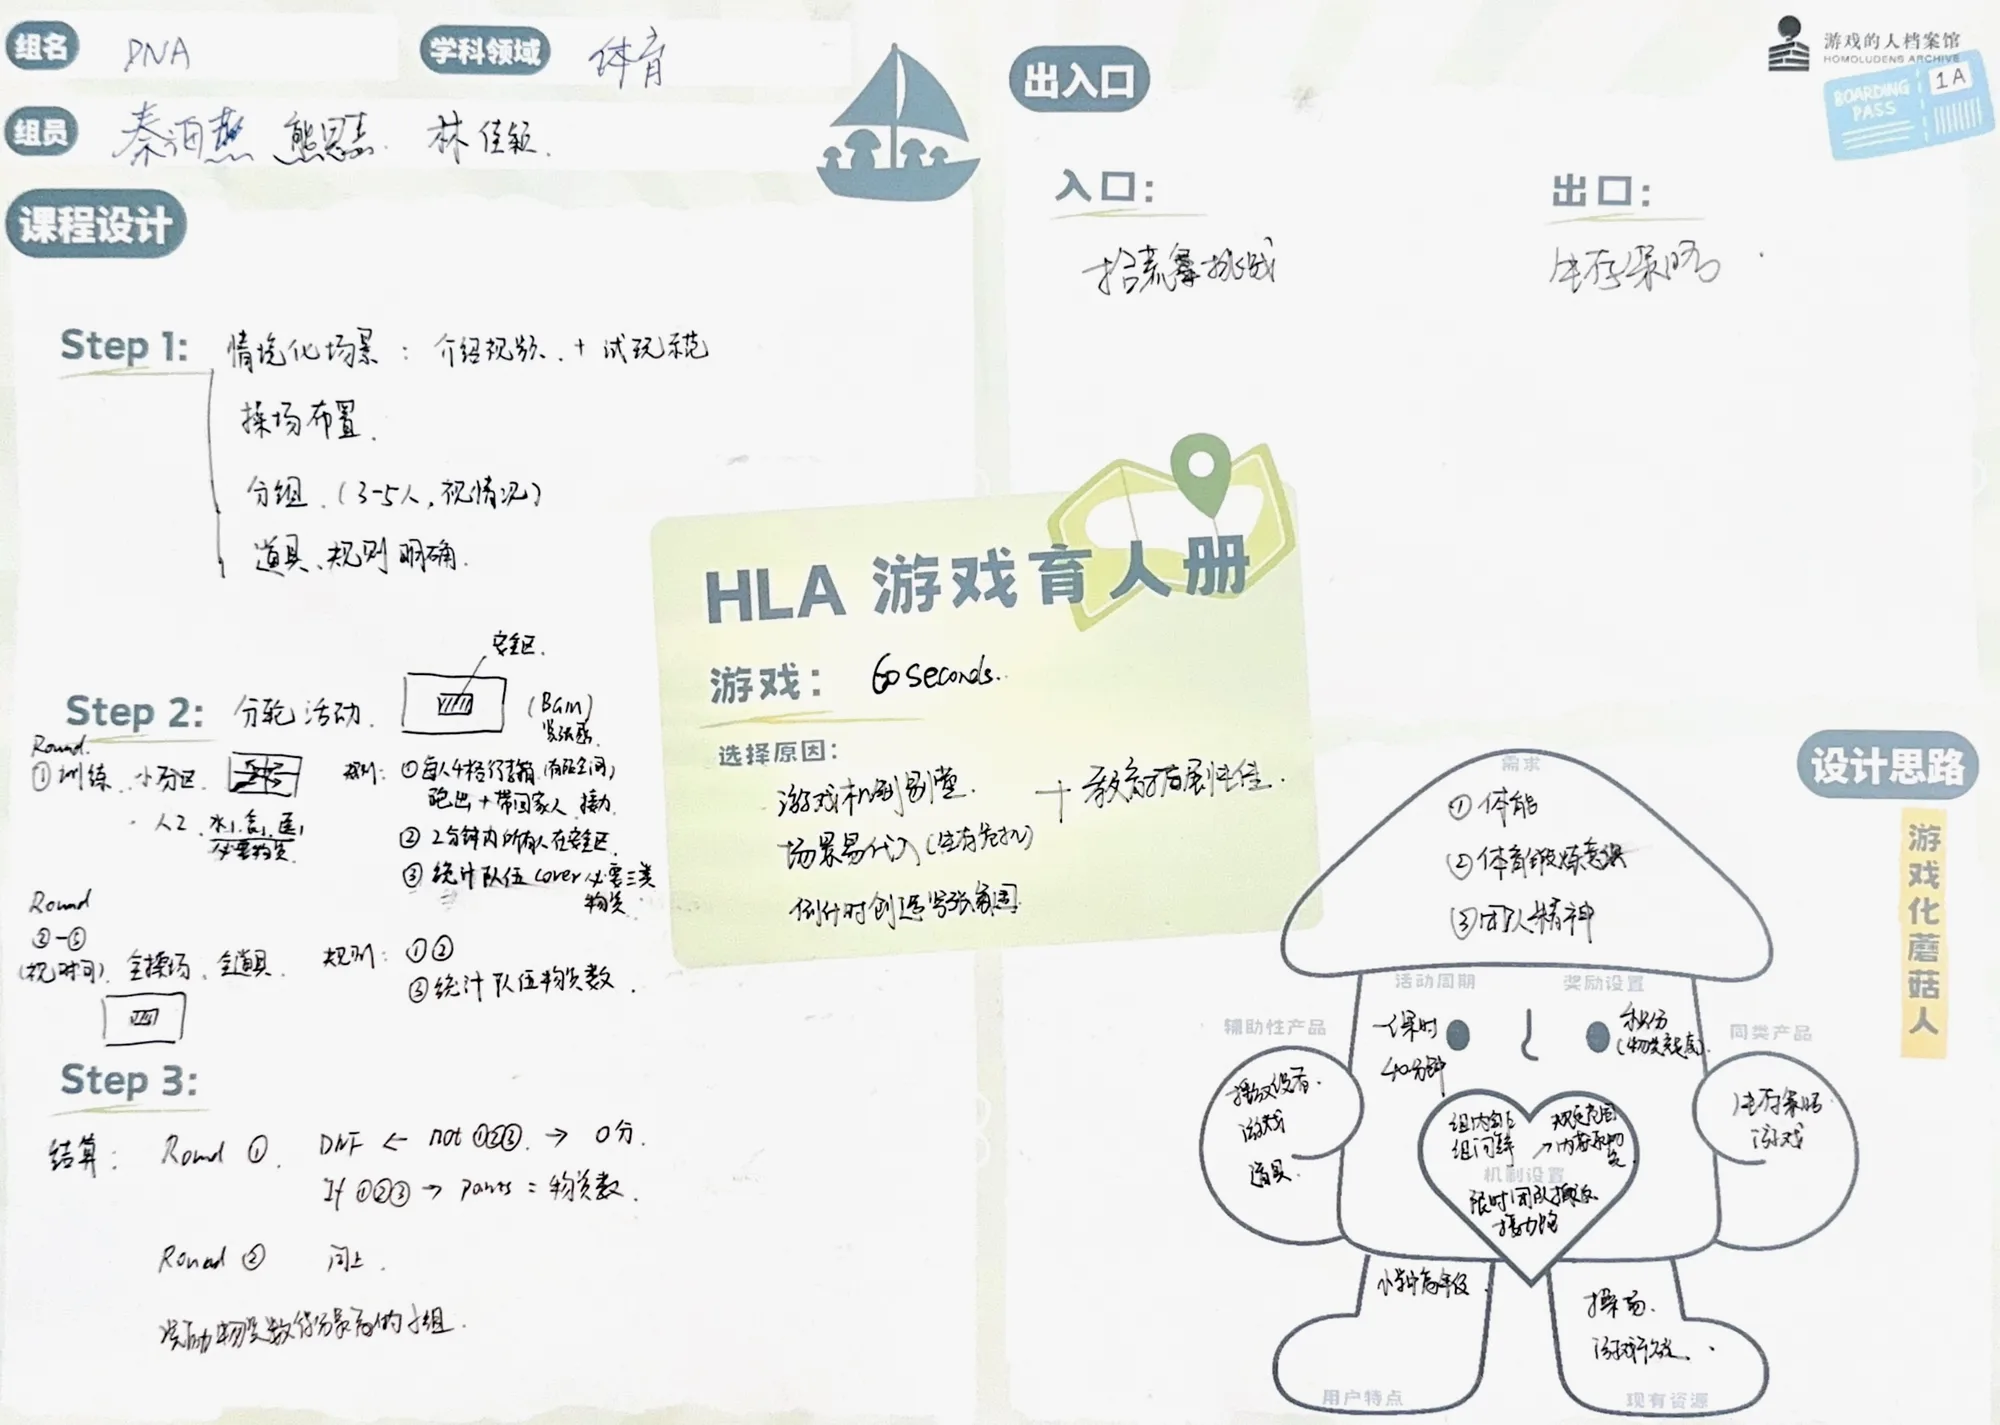 组名 DNA
学科领域 体育
组员 秦泊燕 熊思 林佳颖.
课程设计
Step 1: 情境化场景: 介绍视频. + 试玩示范
操场布置.
分组. (3-5人, 视情况)
道具、规则明确.
安全区.
Step 2: 分轮活动. (BGM) 紧张感.
Round.
① 训练. 小分区.
· 人2. 水1, 食1, 医1
必要物资.
规则: ① 每人4格行李箱 (有限空间)
跑出+带回家人. 接力
② 2分钟内所有人在安全区.
③ 统计队伍cover必要三类
物资.
Round
②-⑤
(视时间). 全操场、全道具.
规则: ①②
③统计队伍物资数.
Step 3:
结算: Round ①. DNF ← not ①②③. → 0分.
If ①②③ → points = 物资数.
Round ② 同上.
奖励物资数得分最高的小组.
HLA 游戏育人册
游戏: 60 seconds.
选择原因:
游戏机制易懂. + 教育拓展性佳.
场景易代入 (生存危机)
倒计时创造紧张氛围
游戏的人档案馆
HOMOLUDENS ARCHIVE
BOARDING
PASS
1A
出入口
入口:
拾荒挑战
出口:
生存策略.
设计思路
游戏化蘑菇人
需求
① 体能
② 体育锻炼意识
③ 团队精神
活动周期
一课时
40分钟
奖励设置
积分
辅助性产品
播放设备.
游戏
道具.
同类产品
生存策略
游戏
组内
组间
规定范围
机制设置
限时团队
接力
小学中高年级.
用户特点
操场.
现有资源